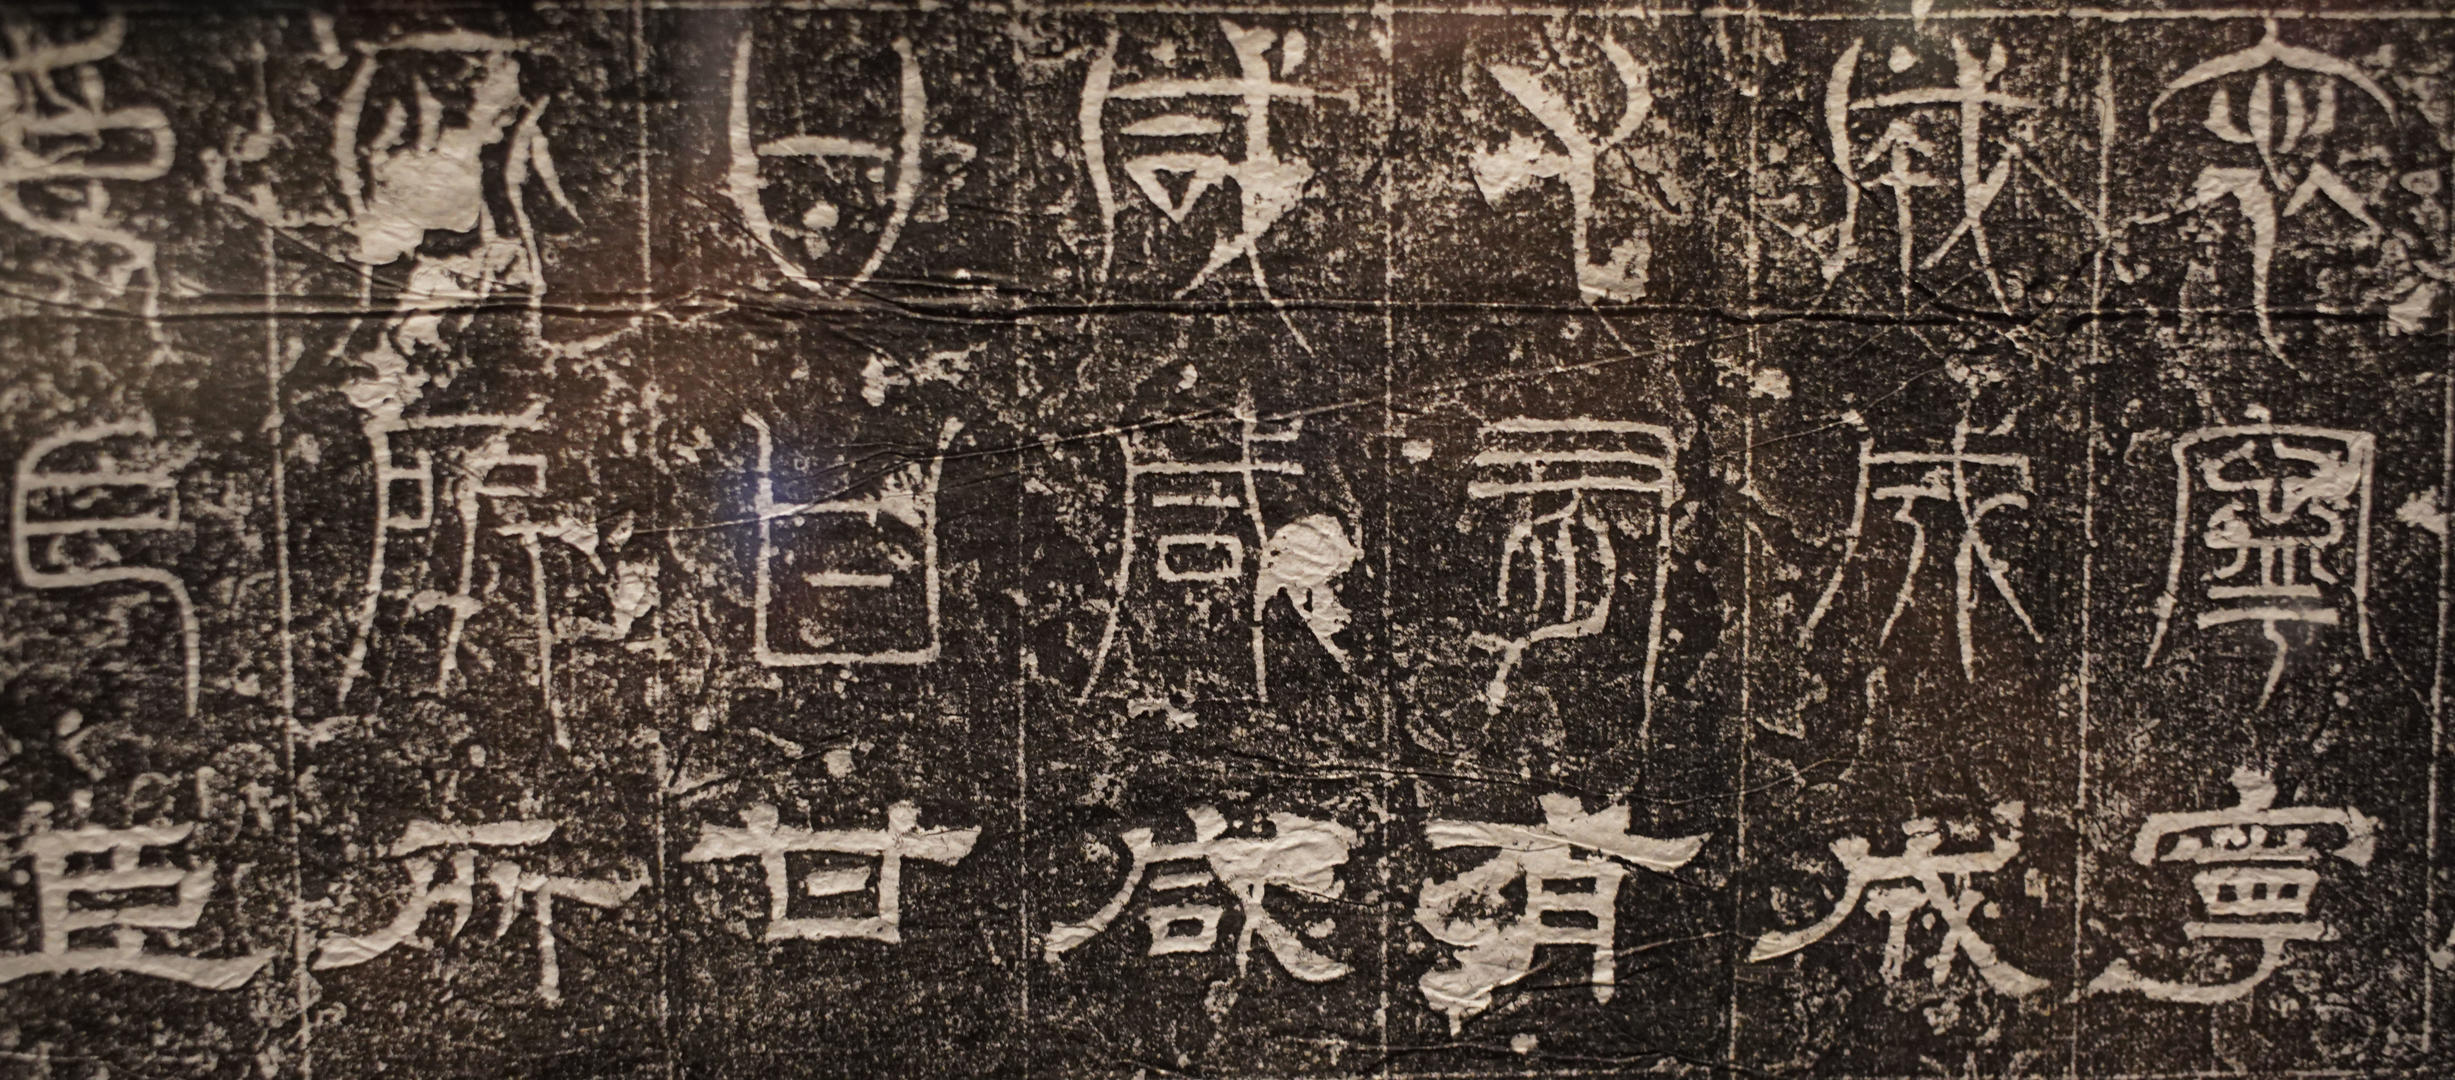 寧寧寧
成成成
有有有
咸咸咸
甘甘甘
所所所
臣臣